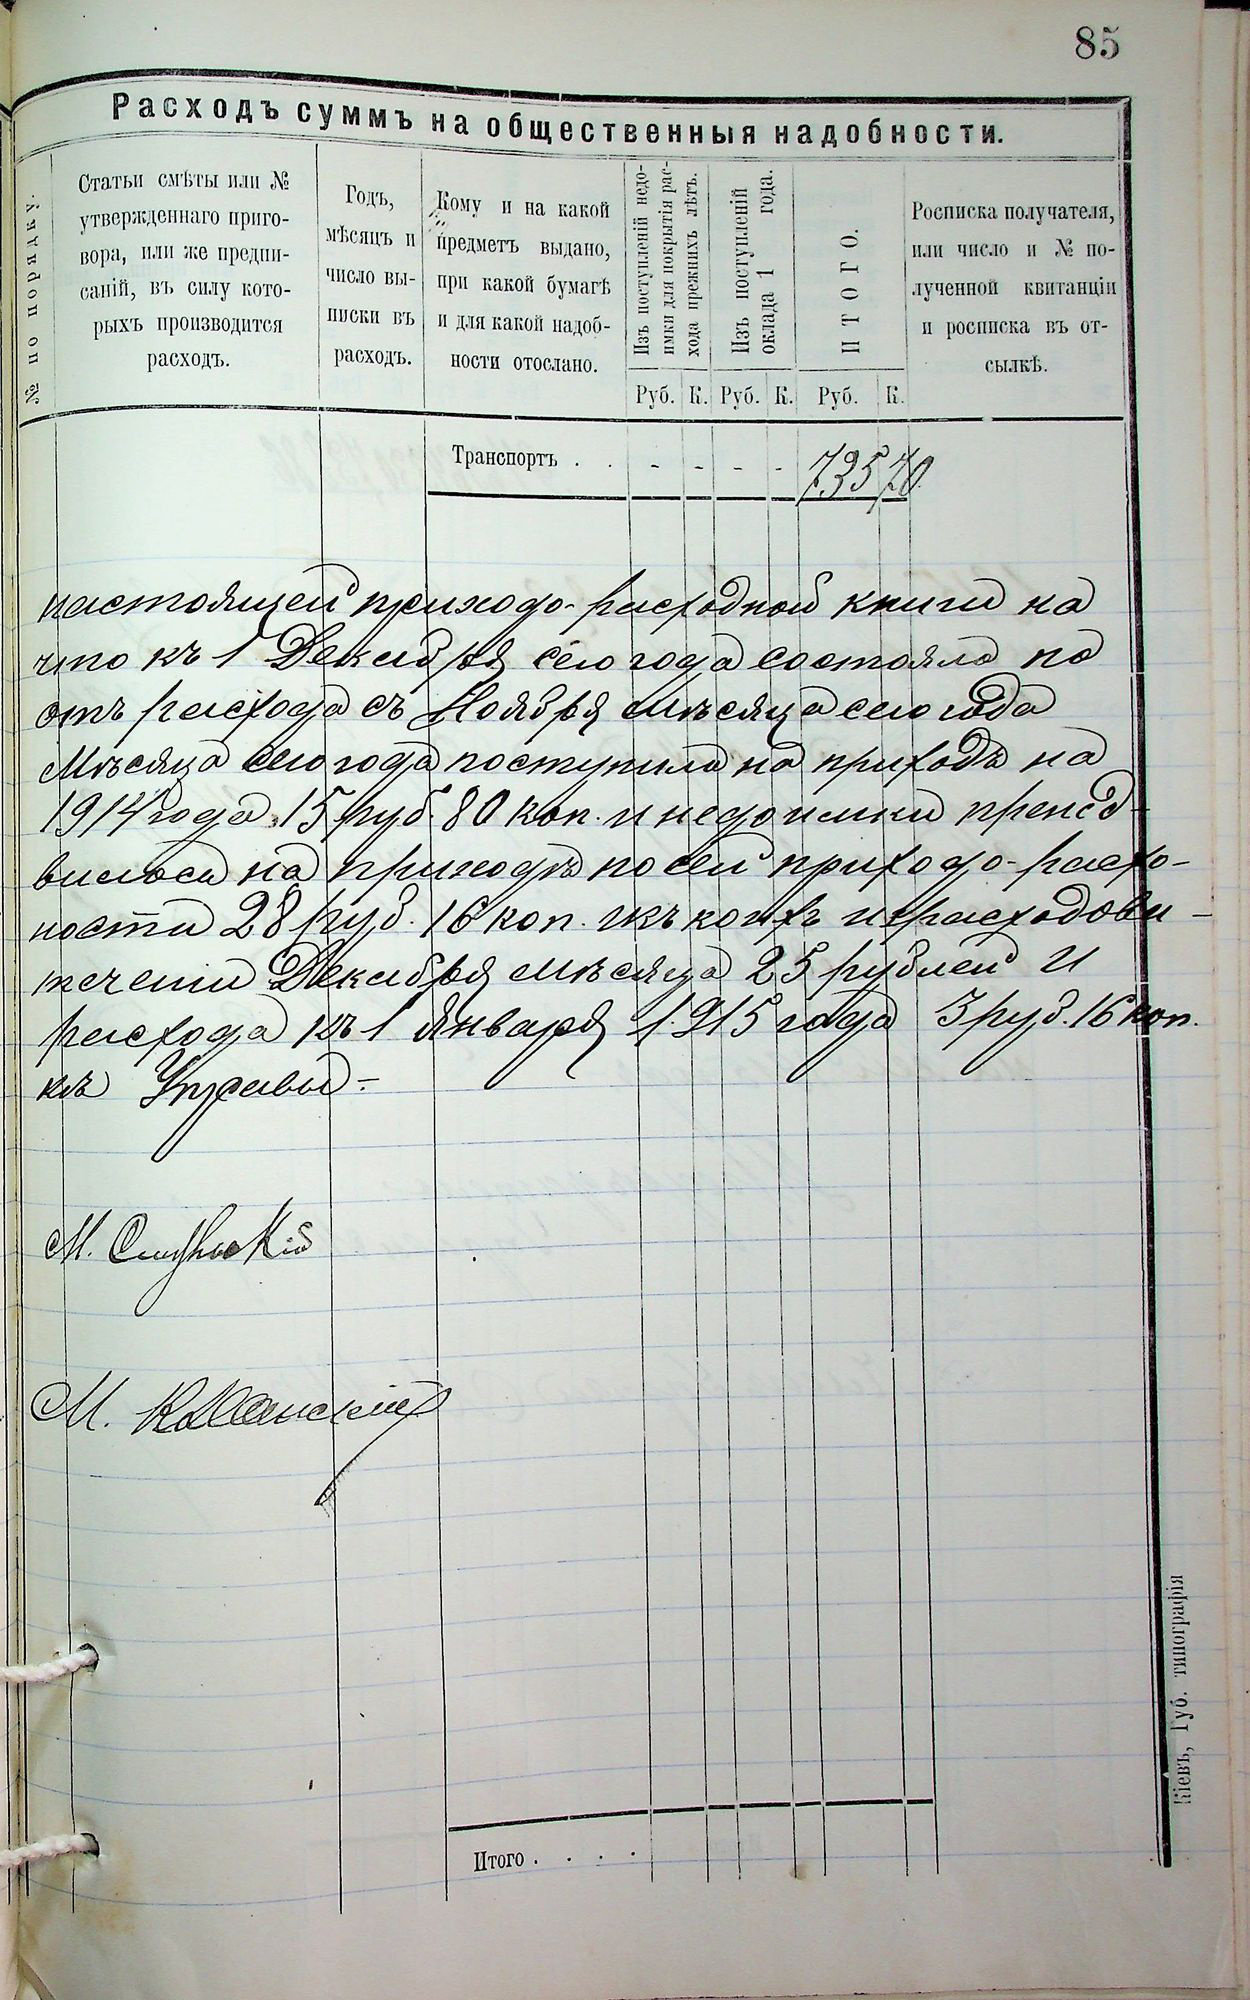 85
Расходъ суммъ на общественныя надобности.
№ по порядку.
Статьи смѣты или №
утвержденнаго приго-
вора, или же предпи-
саній, въ силу кото-
рыхъ производится
расходъ.
Годъ,
мѣсяцъ и
число вы-
писки въ
расходъ.
Кому и на какой
предметъ выдано,
при какой бумагѣ
и для какой надоб-
ности отослано.
Изъ поступленій недо-
имки для покрытія рас-
хода прежнихъ лѣтъ.
Изъ поступленій
оклада 1 года.
ИТОГО.
Росписка получателя,
или число и № по-
лученной квитанціи
и росписка въ от-
сылкѣ.
Руб. К. Руб. К. Руб. К.
Транспортъ . . - - - - 735 70
настоящей приходо-расходной книги на
что къ 1 Декабря сего года состояло на
отъ расхода съ Ноября мѣсяца сего года
Мѣсяца сего года поступило на приходъ на
1914 года 15 руб. 80 коп. и недоимки
на приходъ по сей приходо-расхо-
ности 28 руб. 16 коп. изъ коихъ израсходова
течении Декабря мѣсяца 25 рублей И
расхода къ 1 Января 1915 года 3 руб. 16 коп.
Управы-
М.
М.
Итого . . . .
Кіевъ, Губ. типографія